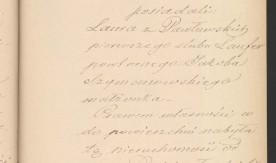 posiadali:
Laura z Pawłowskich
pierwszego ślubu Laufer
powtórnego Jakóba
Szymonowskiego
małżonka.
Prawem własności
do powierzchni nabyła
tę nieruchomość od